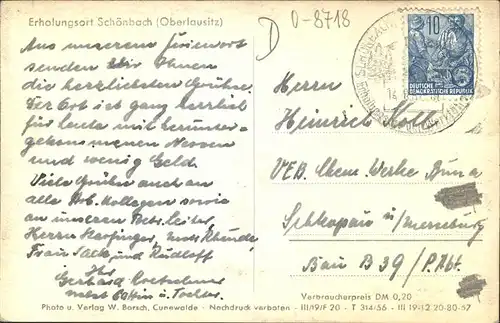 Erholungsort Schönbach (Oberlausitz)
D
0-8718
10
DEUTSCHE
DEMOKRATISCHE REPUBLIK
Aus unserem Ferienort
senden wir Ihnen
die herzlichsten Grüße.
Der Ort ist ganz herrlich
für Leute mit herunter-
gekommenen Nerven
und wenig Geld.
Viele Grüße auch an
alle Arb. Kollegen sowie
an unseren Betr. Leiter,
Herrn
Frau Sack und Rudloff
Ihr
Gerhard
nebst Gattin u. Tochter.
Herrn
Heinrich Kolbe
VEB. Chem. Werke Buna
Schkopau ü/Merseburg
Bau B 39 / P. Abt.
Verbraucherpreis DM 0,20
Photo u. Verlag W. Borsch, Cunewalde - Nachdruck verboten - III/19/F 20 - T 314/56 - III 19-12 20-80-57